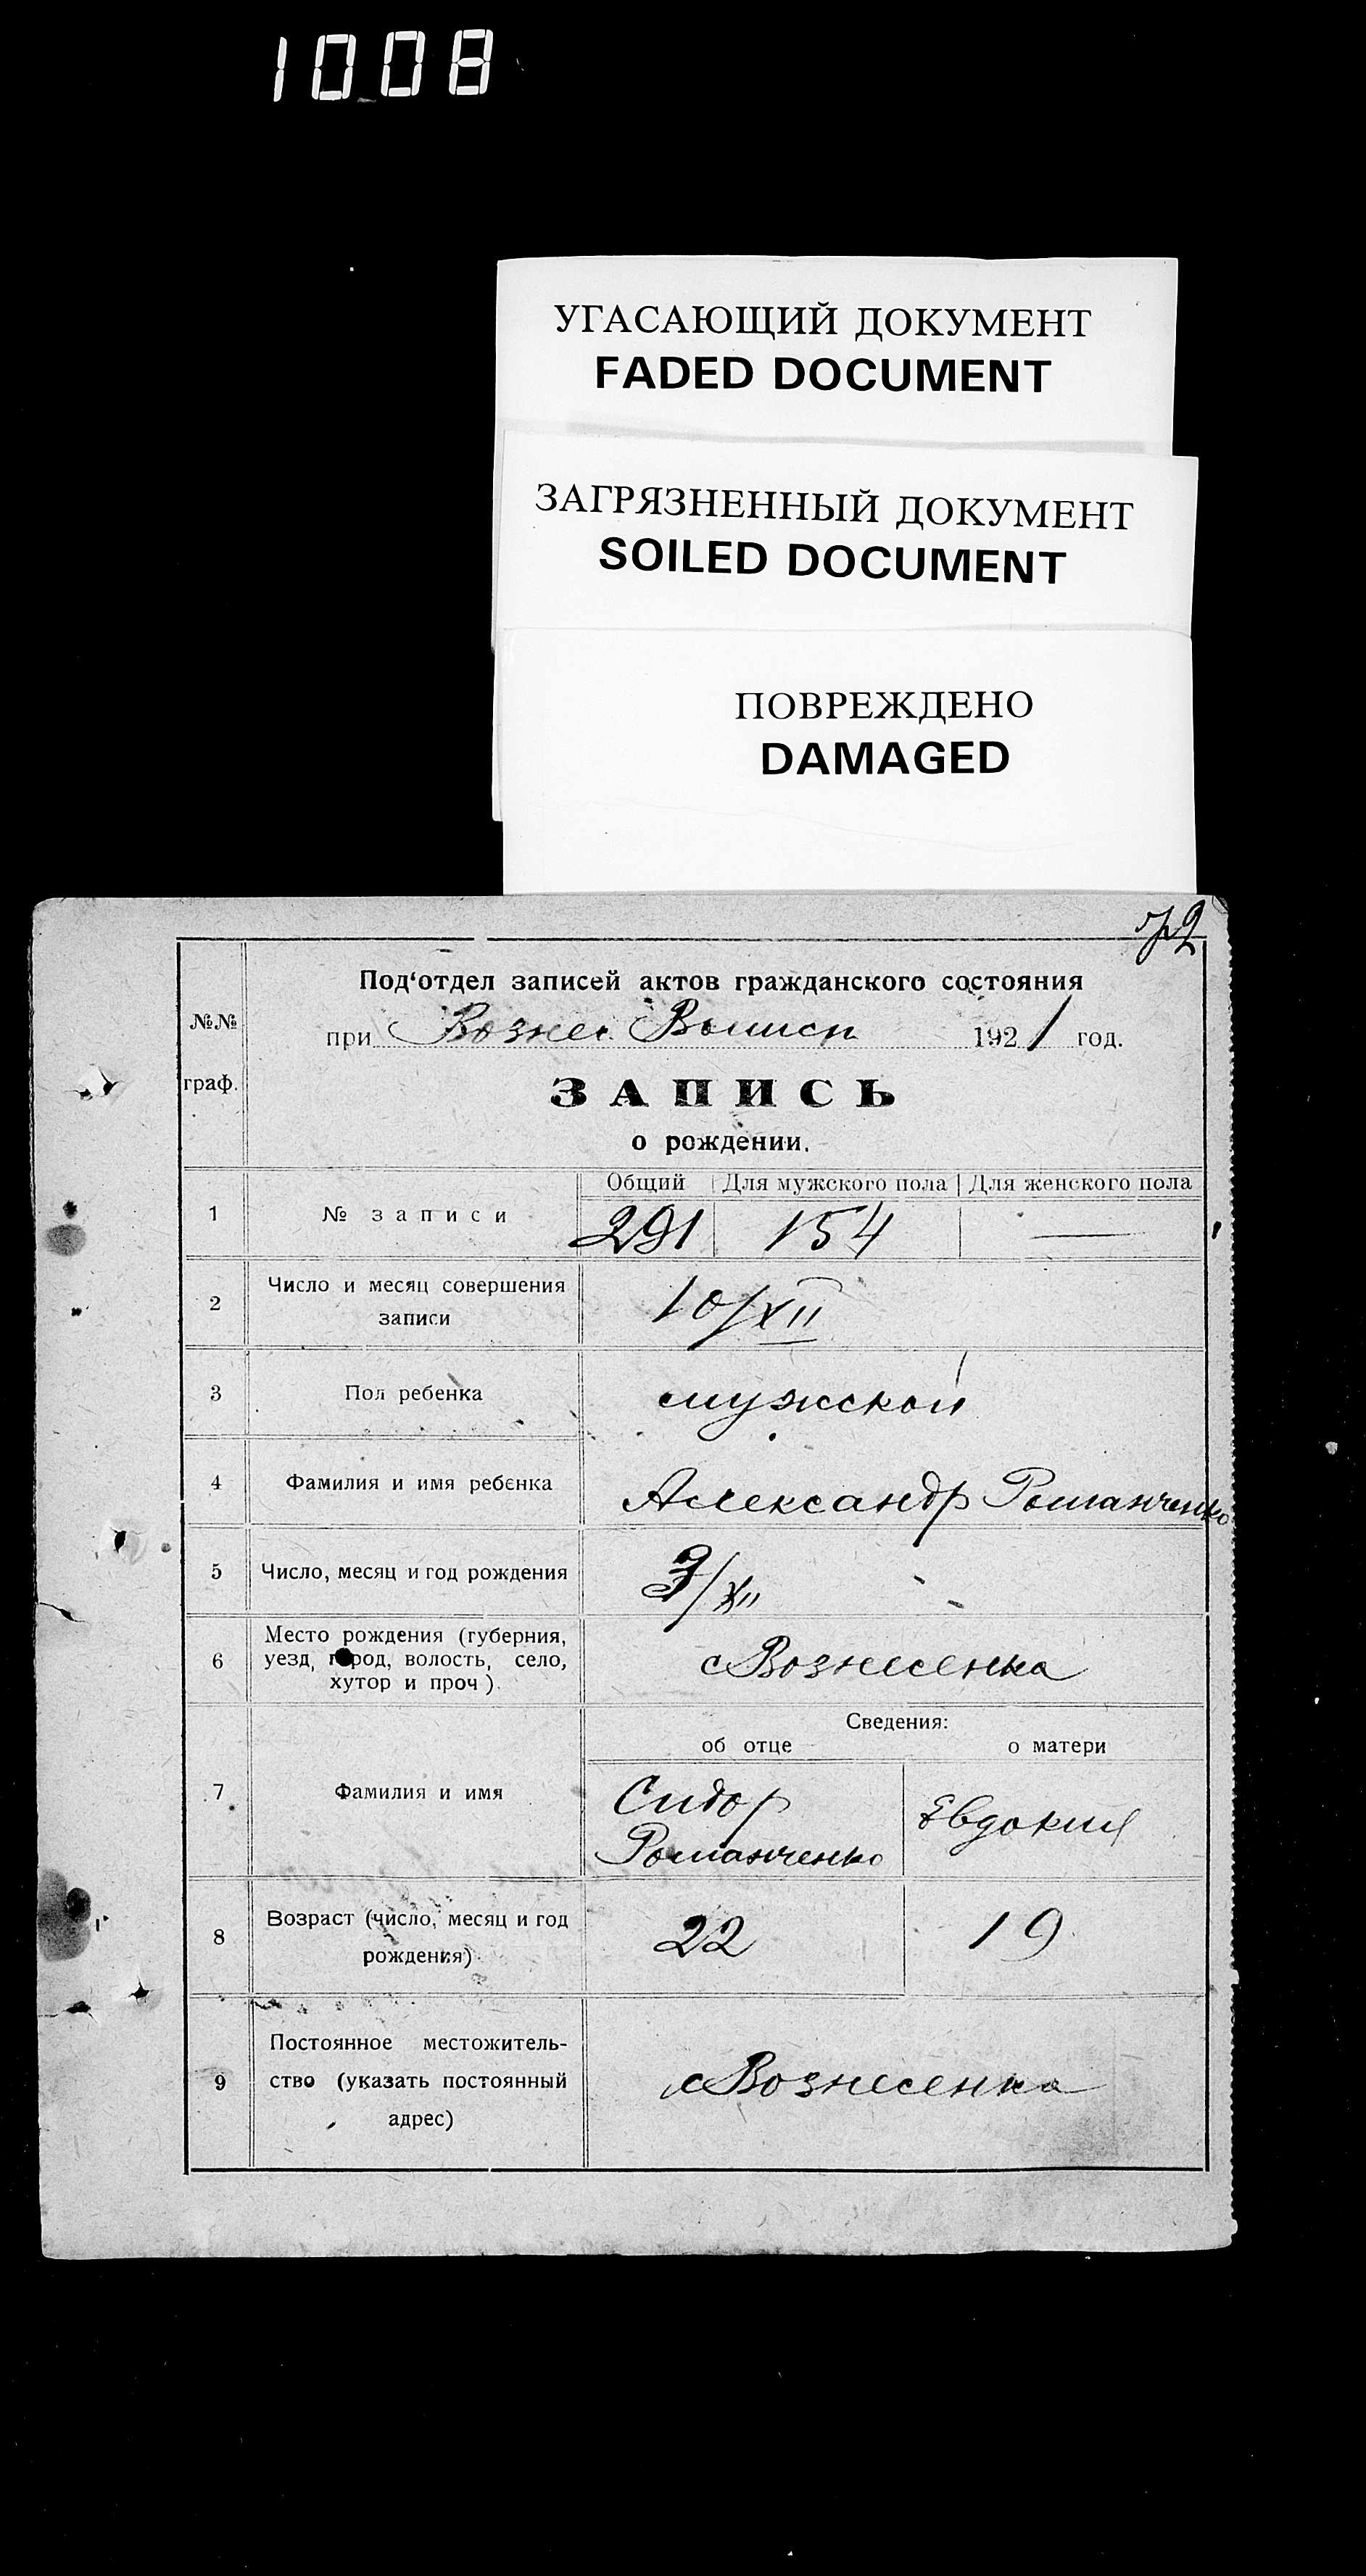 1008
УГАСАЮЩИЙ ДОКУМЕНТ
FADED DOCUMENT
ЗАГРЯЗНЕННЫЙ ДОКУМЕНТ
SOILED DOCUMENT
ПОВРЕЖДЕНО
DAMAGED
Под‘отдел записей актов гражданского состояния
№№ граф.
при Вознес 1921 год.
ЗАПИСЬ
о рождении.
Общий Для мужского пола Для женского пола
1 № записи 291 154 —
2 Число и месяц совершения
записи 10/XII
3 Пол ребенка мужской
4 Фамилия и имя ребенка Александр Романченко
5 Число, месяц и год рождения 3/XII
6 Место рождения (губерния,
уезд, город, волость, село,
хутор и проч). с Вознесенка
Сведения:
об отце о матери
7 Фамилия и имя Сидор
Романченко Евдокия
8 Возраст (число, месяц и год
рождения) 22 19
9 Постоянное местожитель-
ство (указать постоянный
адрес) с Вознесенка